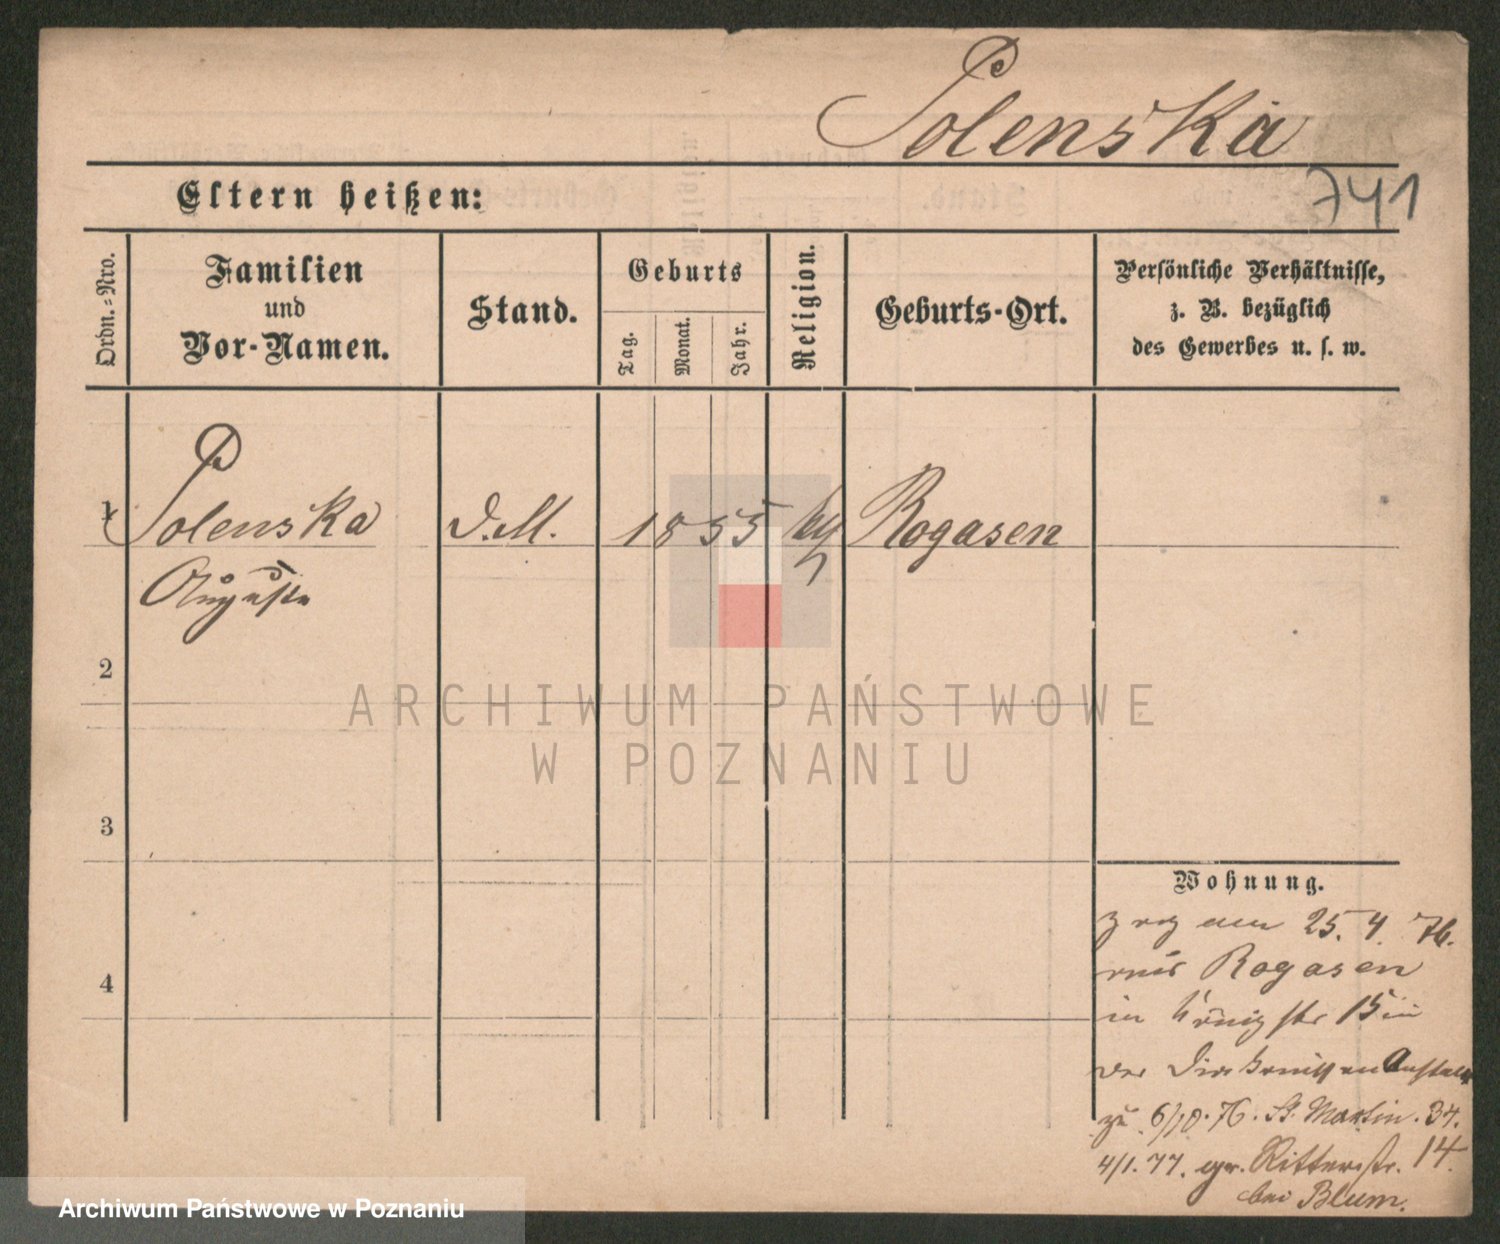 Polenska
Eltern heißen:
741
Ordn.=Nro.
Familien
und
Vor-Namen.
Stand.
Geburts
Tag.
Monat.
Jahr.
Religion.
Geburts-Ort.
Persönliche Verhältnisse,
z. B. bezüglich
des Gewerbes u. s. w.
1
Polenska
D.M.
1855
Rogasen
Auguste
2
3
4
Wohnung.
zog am 25. 4. 76.
aus Rogasen
in Königstr 15 in
der Diakonissen Anstalt
zu 6/10. 76. St. Martin. 34.
4/1. 77. Ritterstr. 14.
bei Blum.
ARCHIWUM PAŃSTWOWE
W POZNANIU
Archiwum Państwowe w Poznaniu